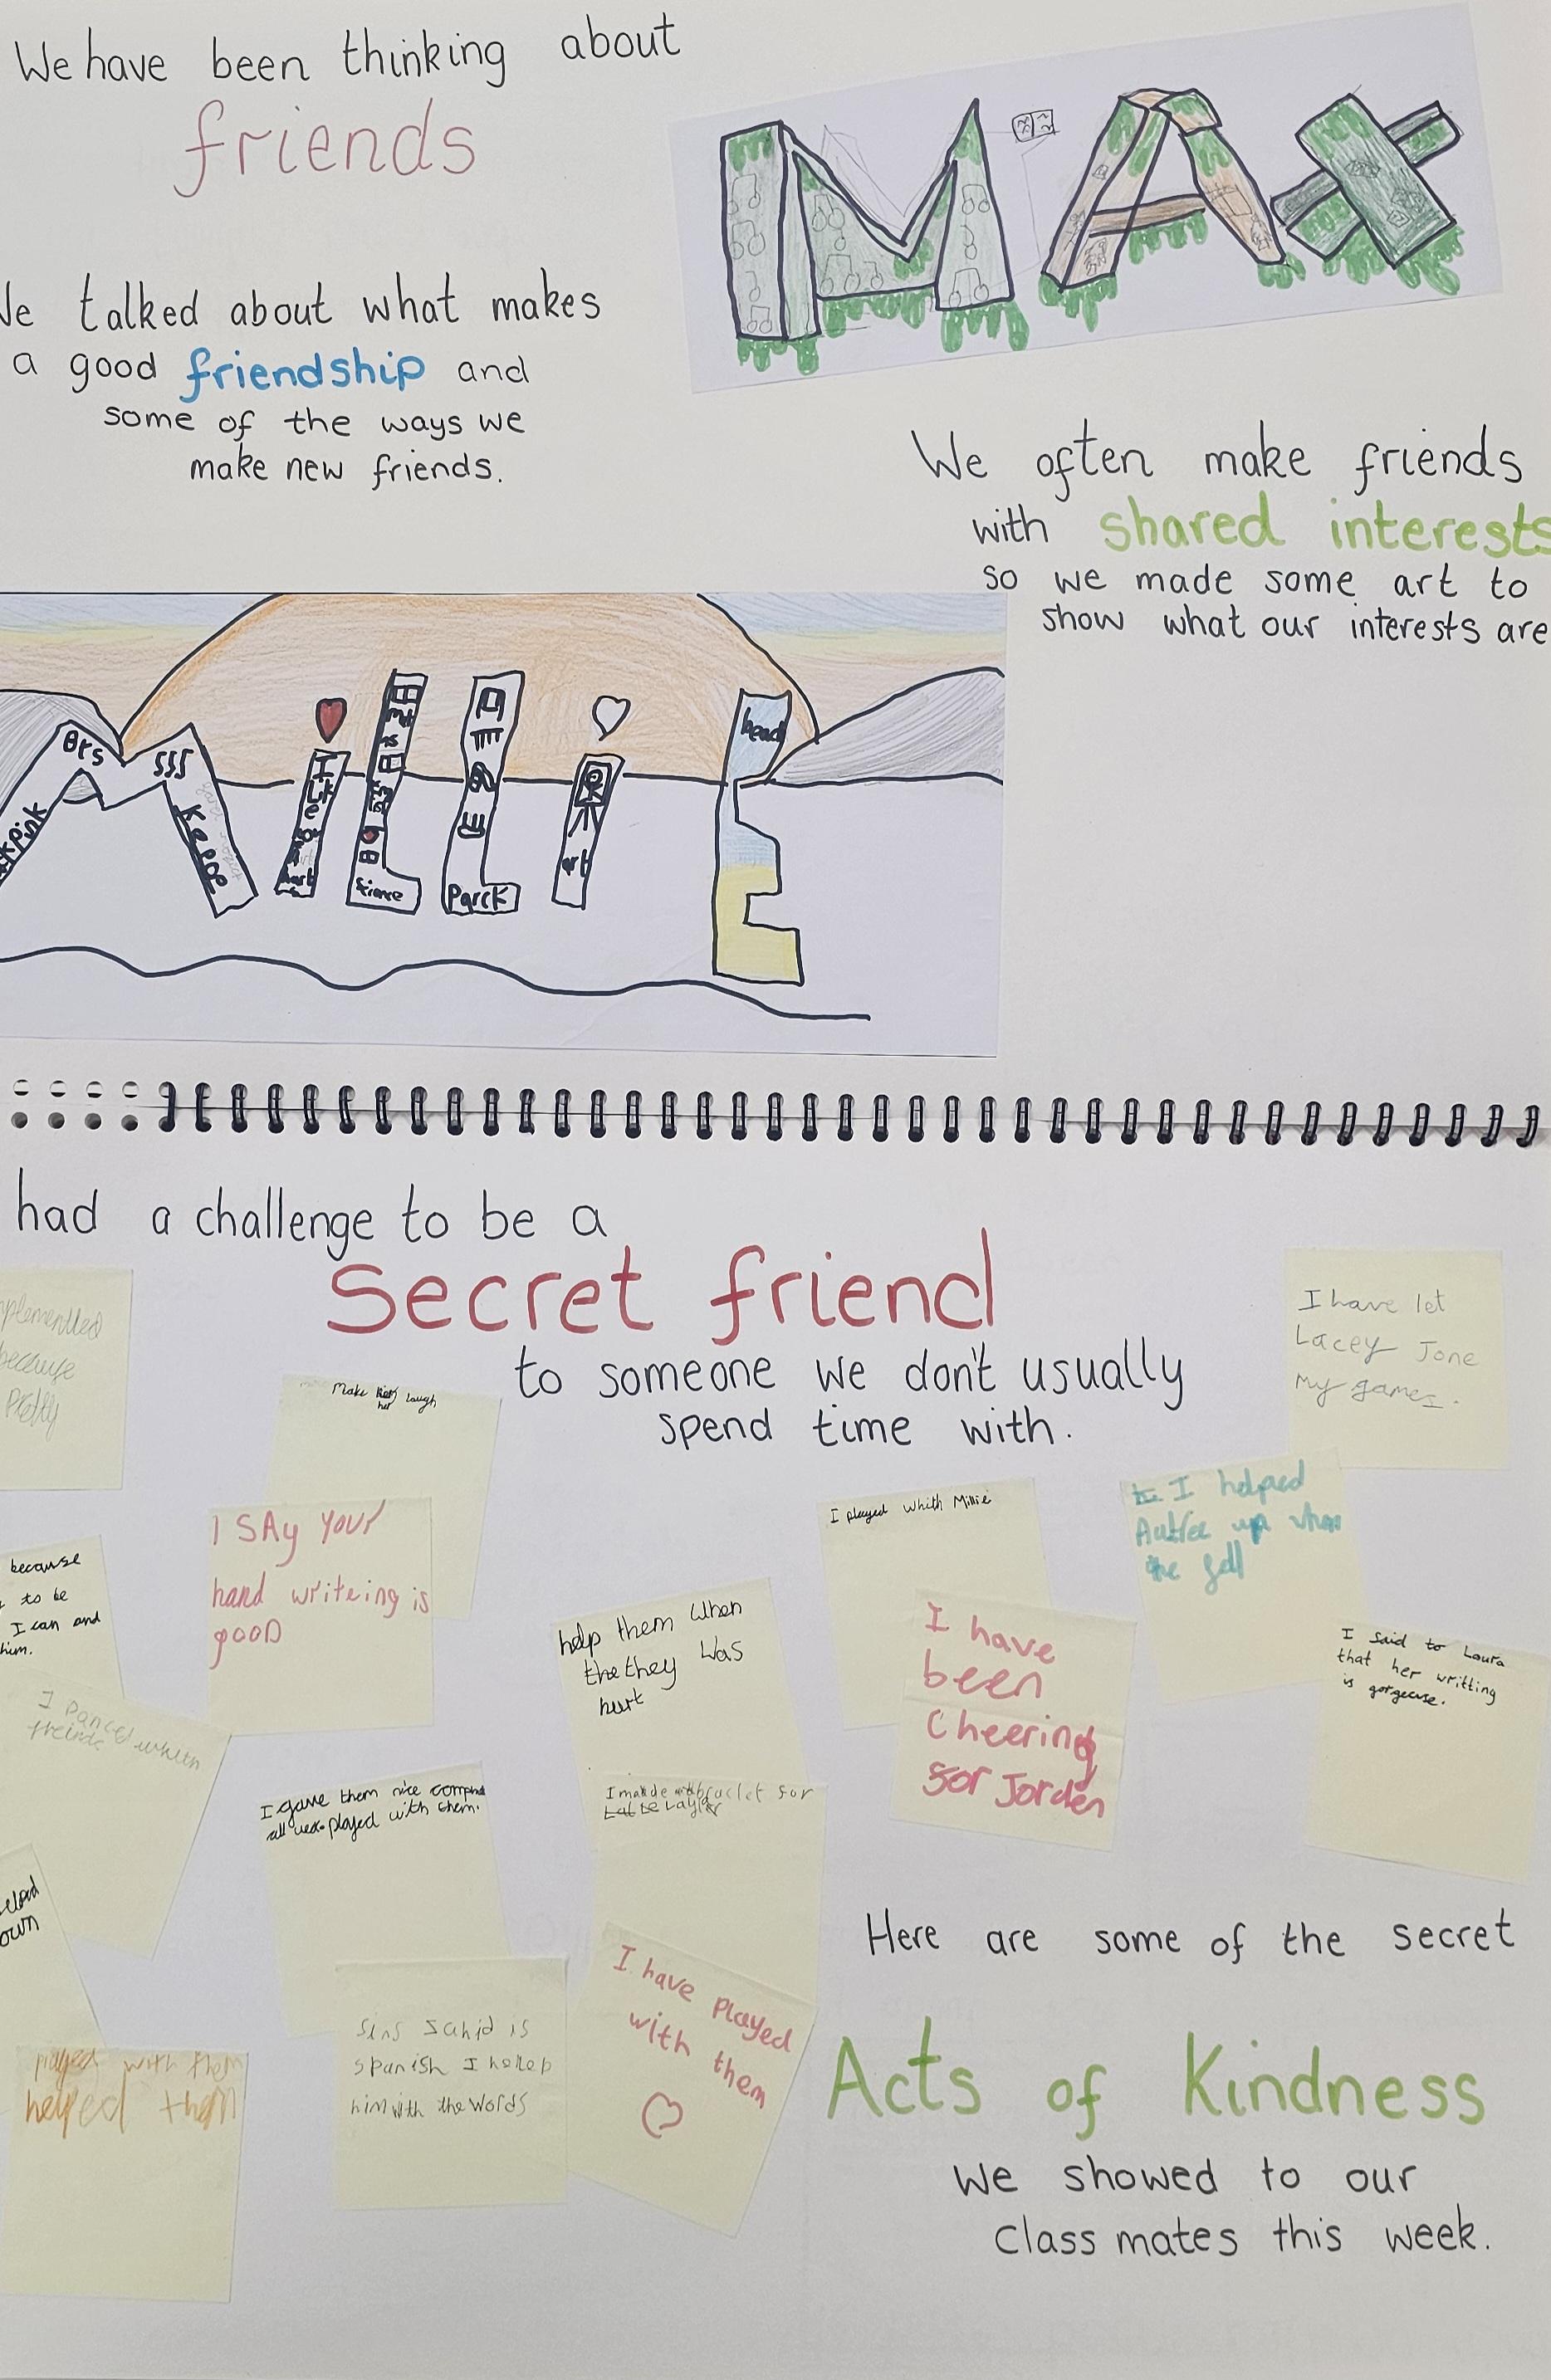 We have been thinking about
friends
We talked about what makes
a good friendship and
some of the ways we
make new friends.
MAX
We often make friends
with shared interests
so we made some art to
show what our interests are
MILLIE
pink
Keepe
I Like
art
Science
Parck
art
head
had a challenge to be a
Secret friend
to someone we don't usually
spend time with.
because
Pretty
Make her laugh
I have let
Lacey Jone
My games.
I SAy YOUr
hand writeing is
gOOD
I played whith Millie
I helped
up when
the fell
because
to be
I can and
him.
help them when
the they was
hurt
I have
been
Cheering
for Jorden
I said to Laura
that her writting
is gorgeuse.
I Danced
I gave them nice
played with them.
for
own
I have played
with them
played with them
helped them
is
spanish I
him with the words
Here are some of the secret
Acts of Kindness
we showed to our
Class mates this week.